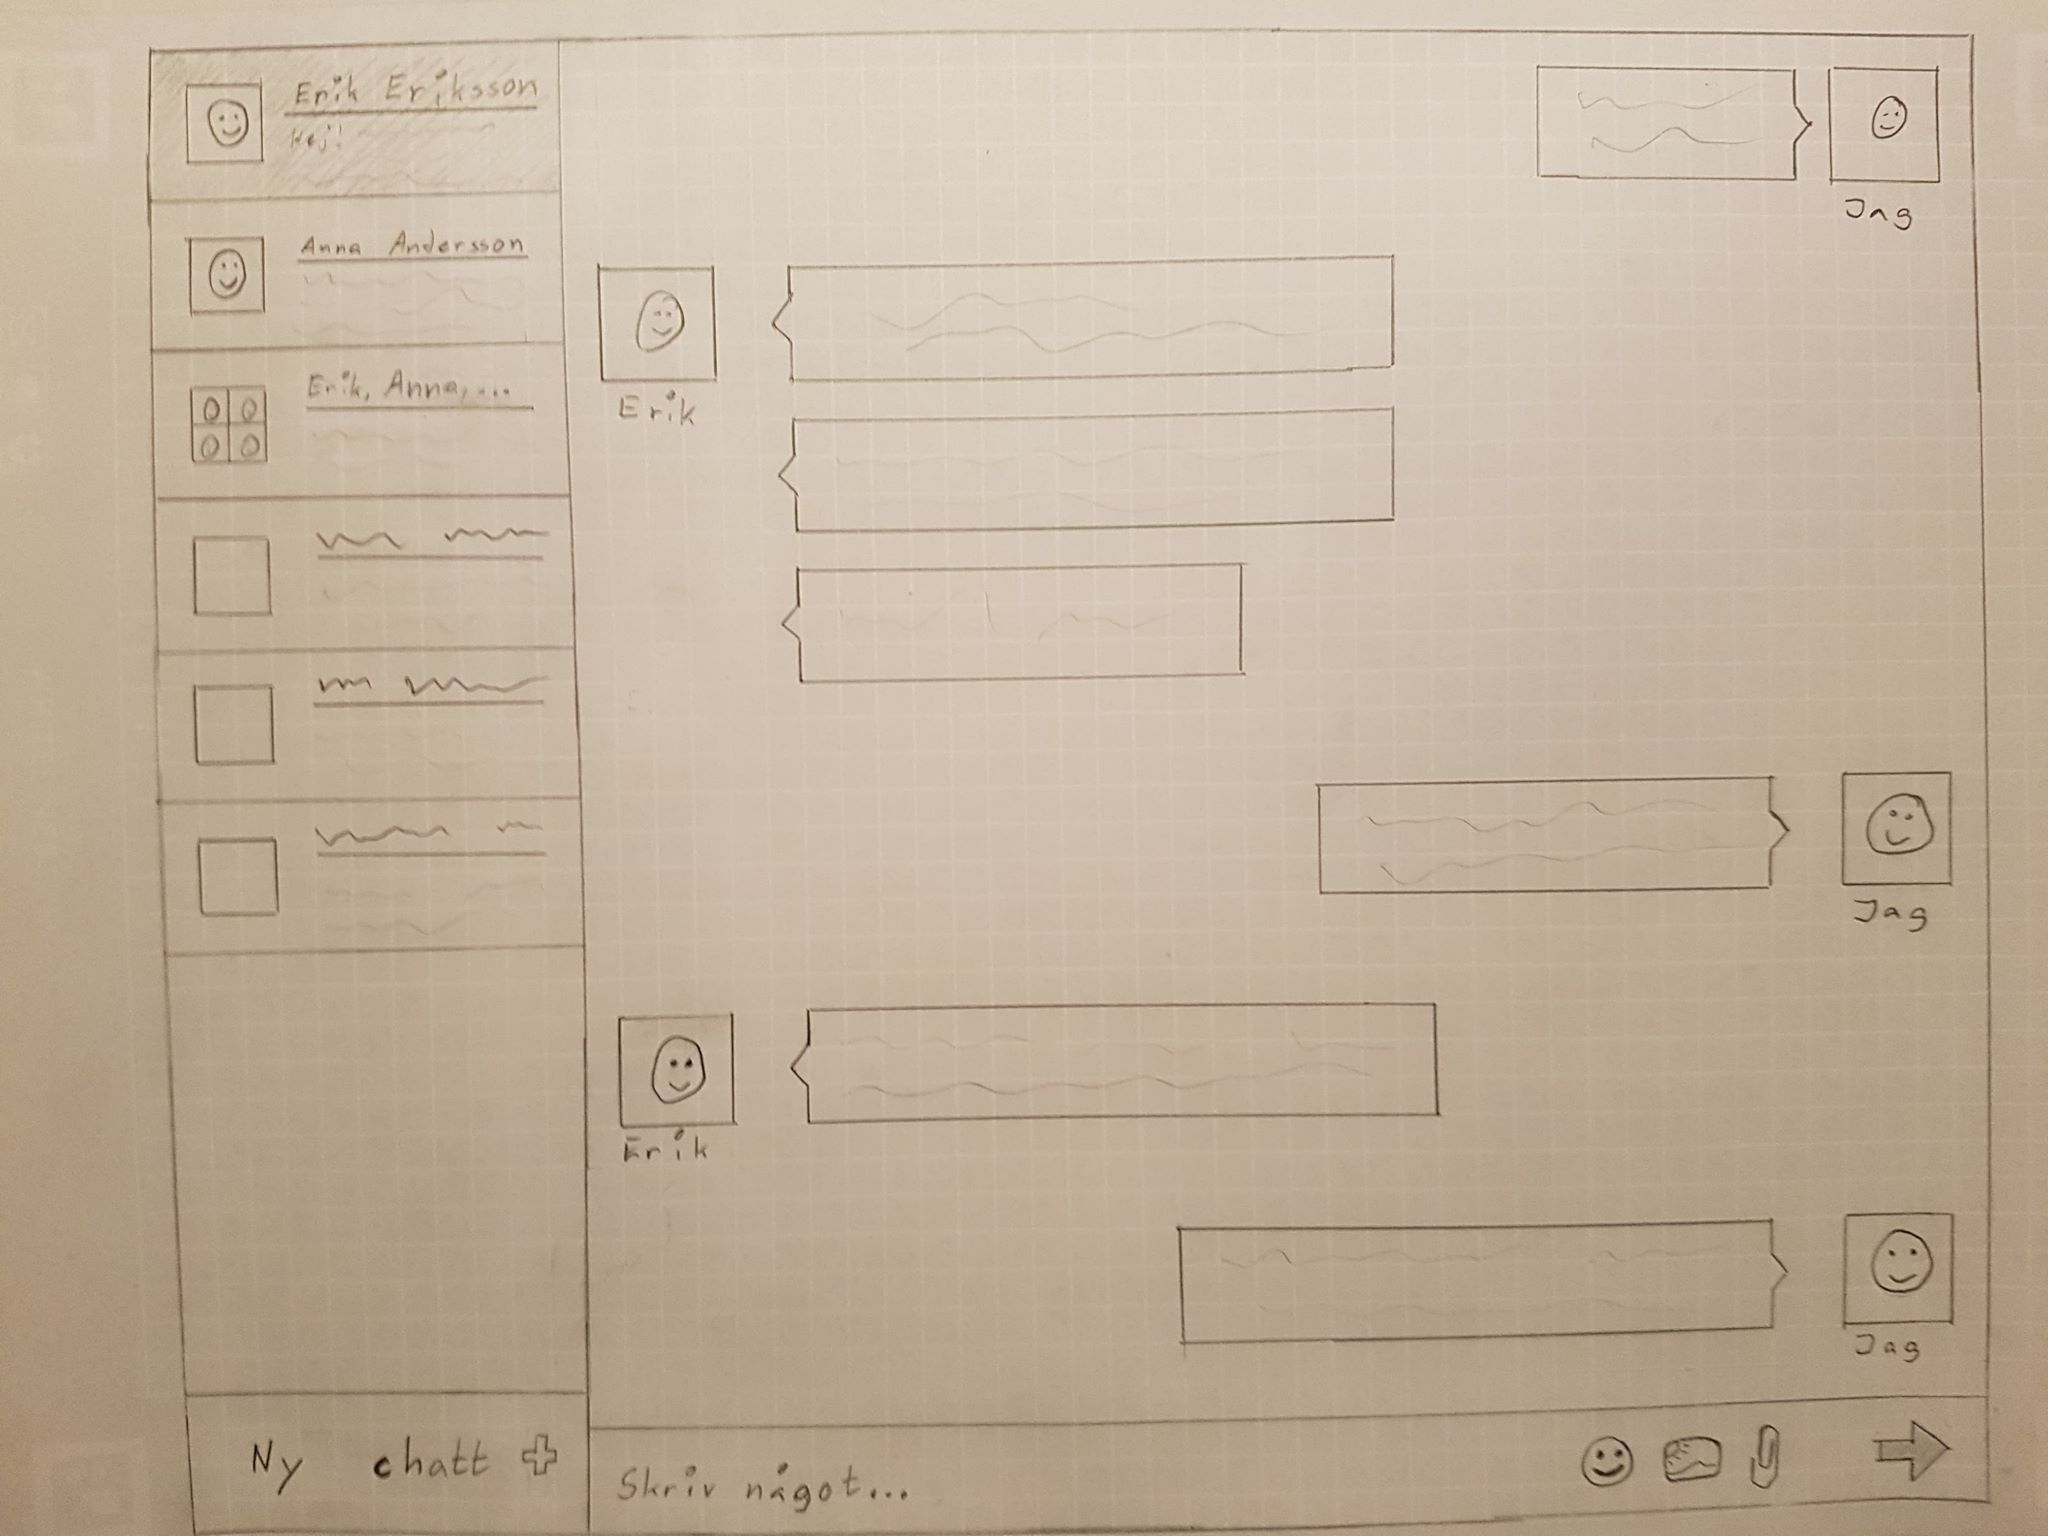 Erik Eriksson
Hej!
Anna Andersson
Erik, Anna,...
Ny chatt
Jag
Erik
Jag
Erik
Jag
Skriv något...